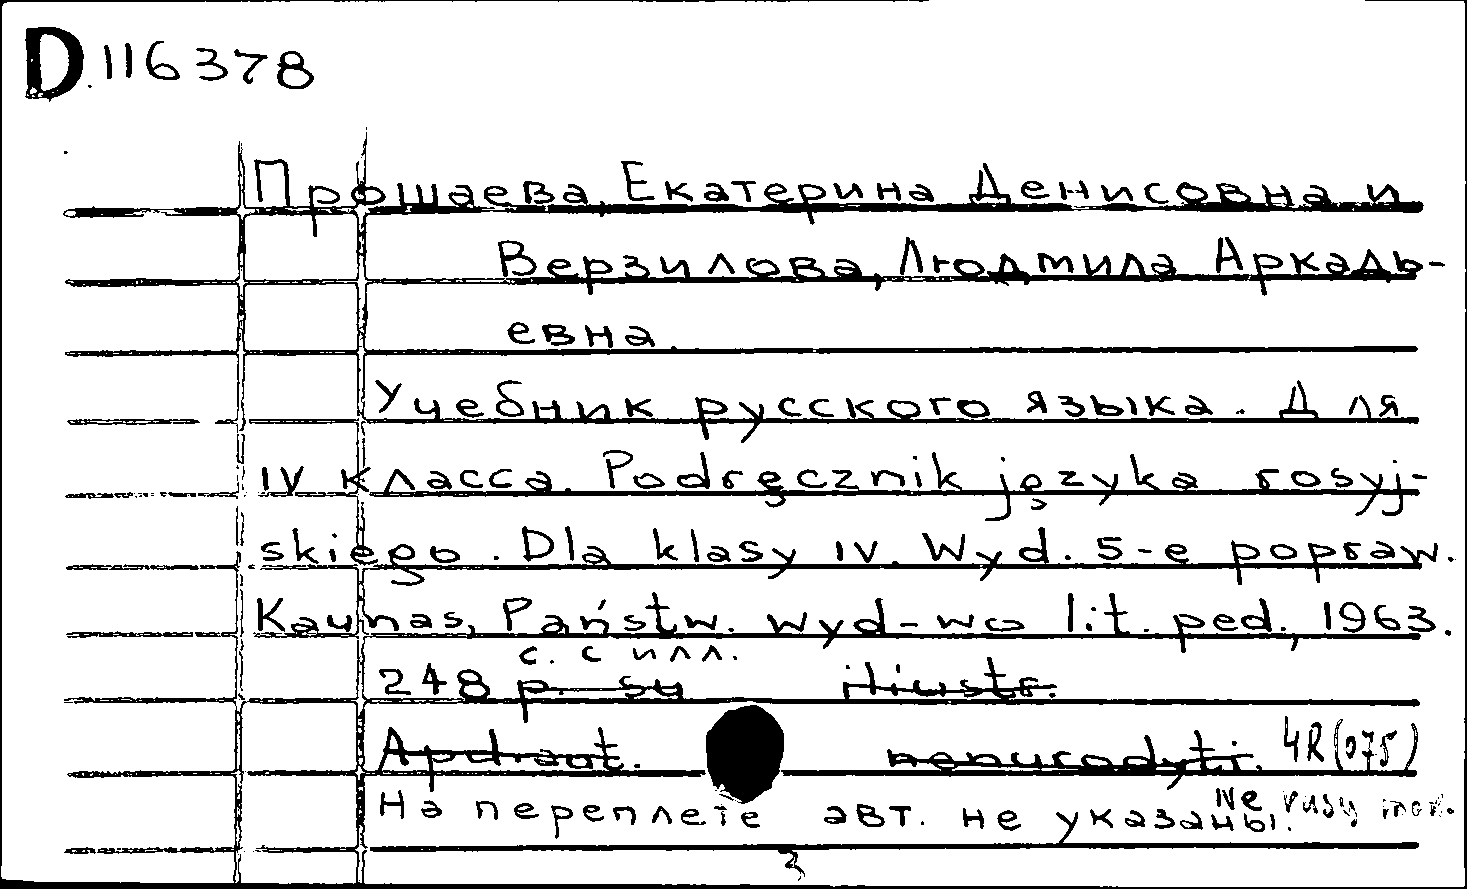 D.116378
Прошаева, Екатерина Денисовна и
Верзилова, Людмила Аркадь-
евна.
Учебник русского языка. Для
IV класса. Podręcznik języka rosyj-
skiego. Dla klasy IV. Wyd. 5-e popraw.
Kaunas, Państw. wyd-wo lit. ped., 1963.
с. с илл.
248 p. su iliustr.
Apdraat. nenurodyti. 4R(075)
На переплете авт. не указаны. Ne rusų mok.
3